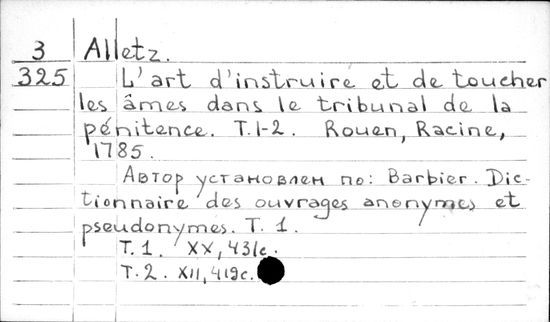 3 Alletz.
325 L'art d'instruire et de toucher
les âmes dans le tribunal de la
pénitence. T.1-2. Rouen, Racine,
1785.
Автор установлен по: Barbier. Dic-
tionnaire des ouvrages anonymes et
pseudonymes. T. 1.
T. 1. XX, 431c.
T. 2. XII, 419c.